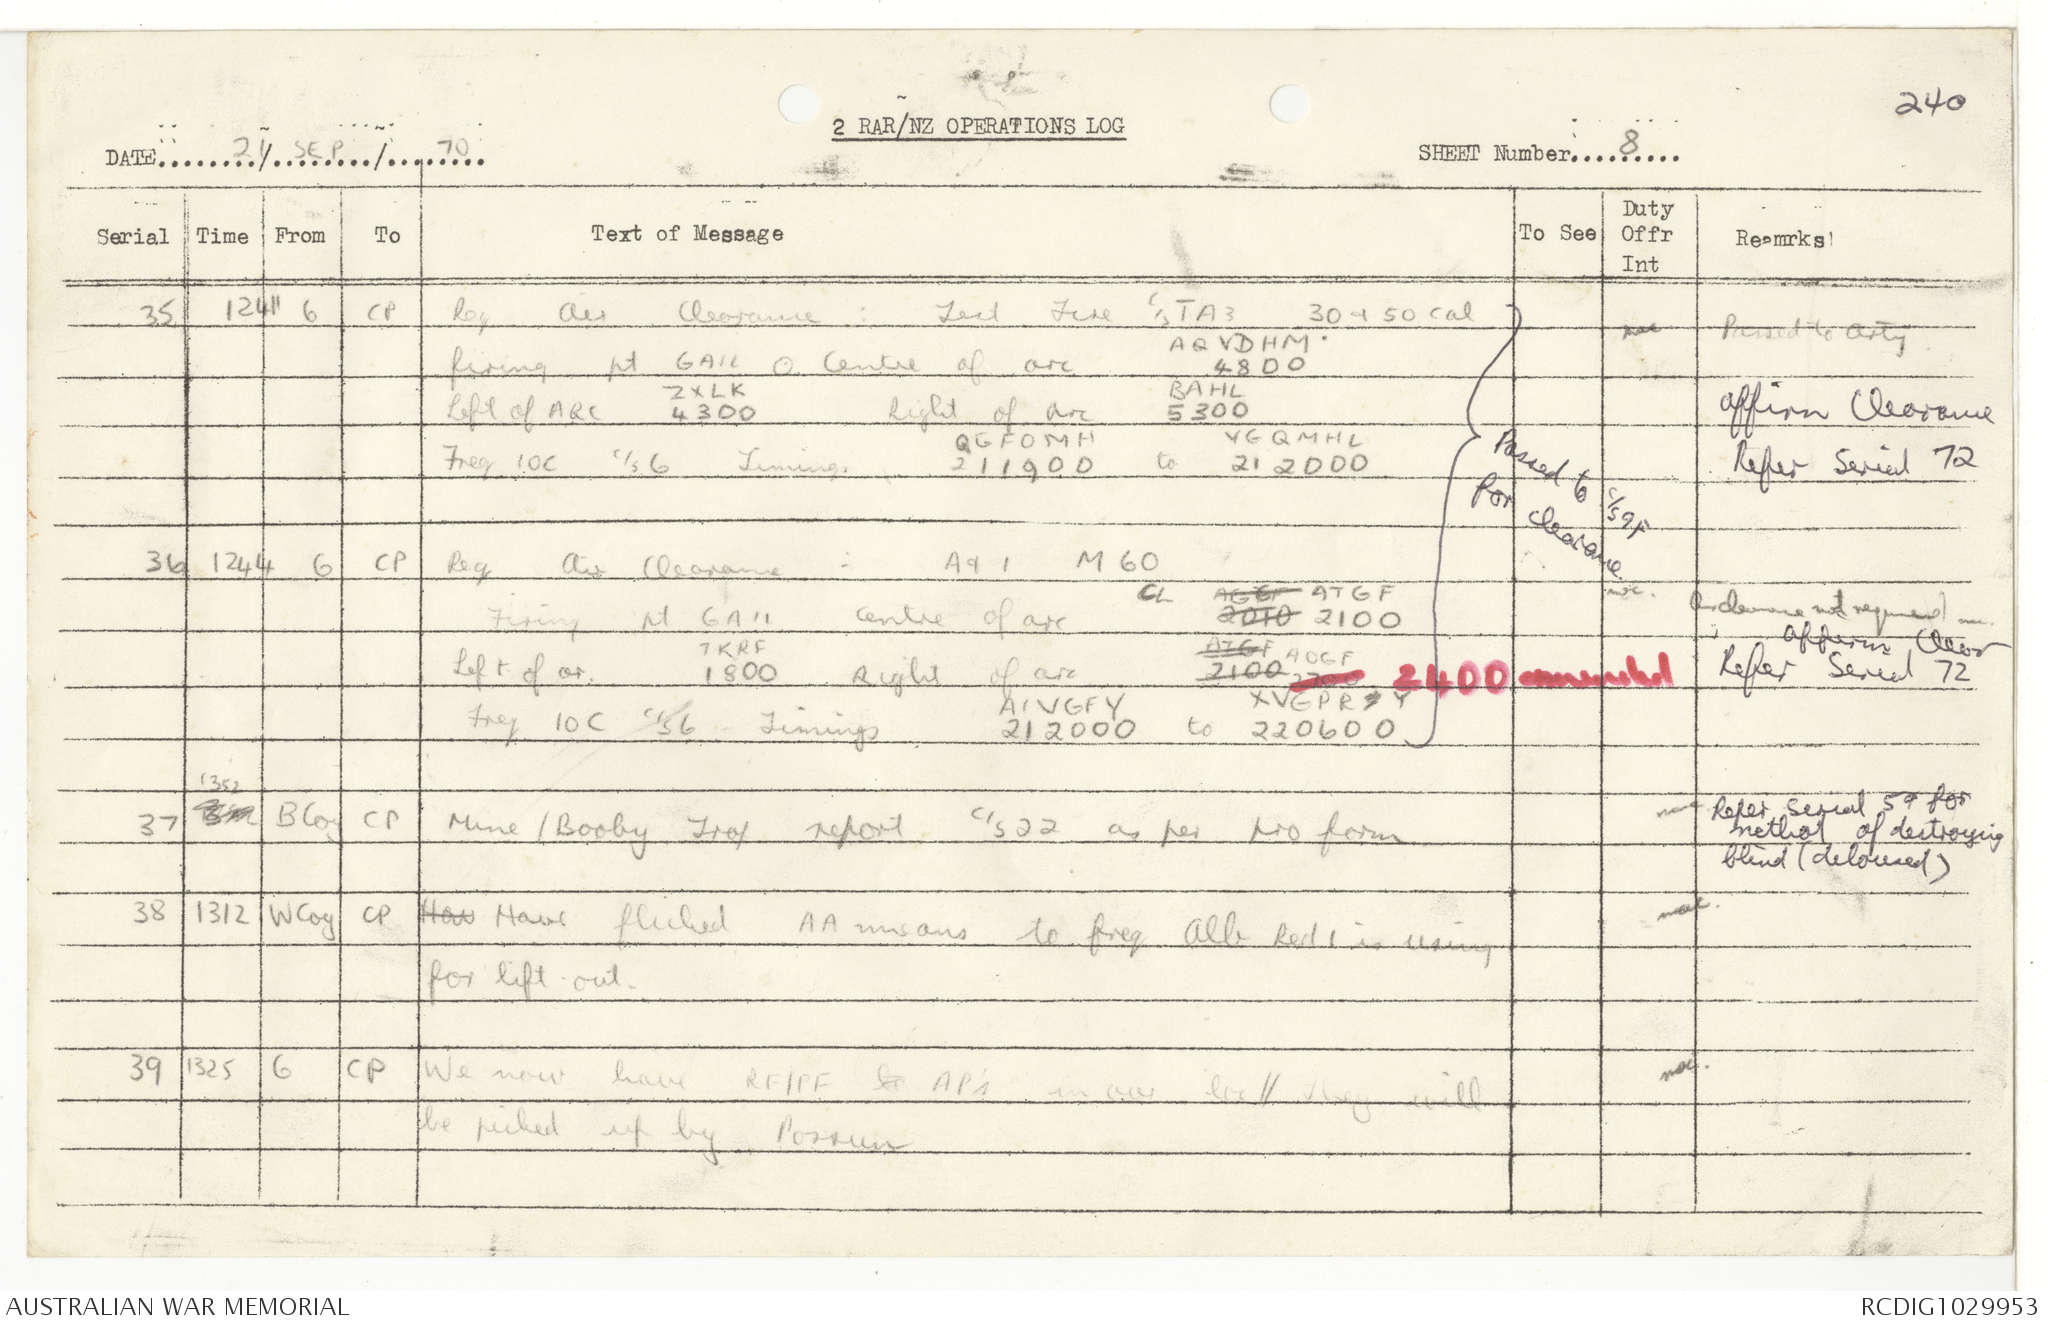 240
2 RAR/NZ OPERATIONS LOG
DATE 21/SEP/70
SHEET Number 8
Serial Time From To Text of Message To See Duty Offr Int Reamrks
35 1241 6 CP Req Air Clearance : Test Fire C/S TA3 30 & 50 cal Passed to arty
AQVDHM
firing pt GAIL Centre of arc 4800
ZXLK BAHL
Left of ARC 4300 Right of arc 5300 Affirm Clearance
QGFOMH VGQMHL
Freq 10C C/S 6 Timings 211900 to 212000 Refer Serial 72
Passed to C/S 9F
for clearance
36 1244 6 CP Req Air Clearance : A41 M60
CL AGGF ATGF
Firing pt GAIL Centre of arc 2010 2100 Air clearance not required
Affirm Clear
TKRF ATGF AOGF
Left of ar. 1800 Right of arc 2100 2400 amended Refer Serial 72
AIVGFY XVGPR Y
Freq 10C C/S 6 Timings 212000 to 220600
1352
37 BCoy CP Mine/Booby Trap report C/S 22 as per pro form Refer Serial 59 for
method of destroying
blind (deloused)
38 1312 WCoy CP Have Have flicked AA means to freq Alb Red 1 is using
for lift out.
39 1325 6 CP We now have RF/PF to AP's in our loc // They will
be picked up by Possum
AUSTRALIAN WAR MEMORIAL
RCDIG1029953